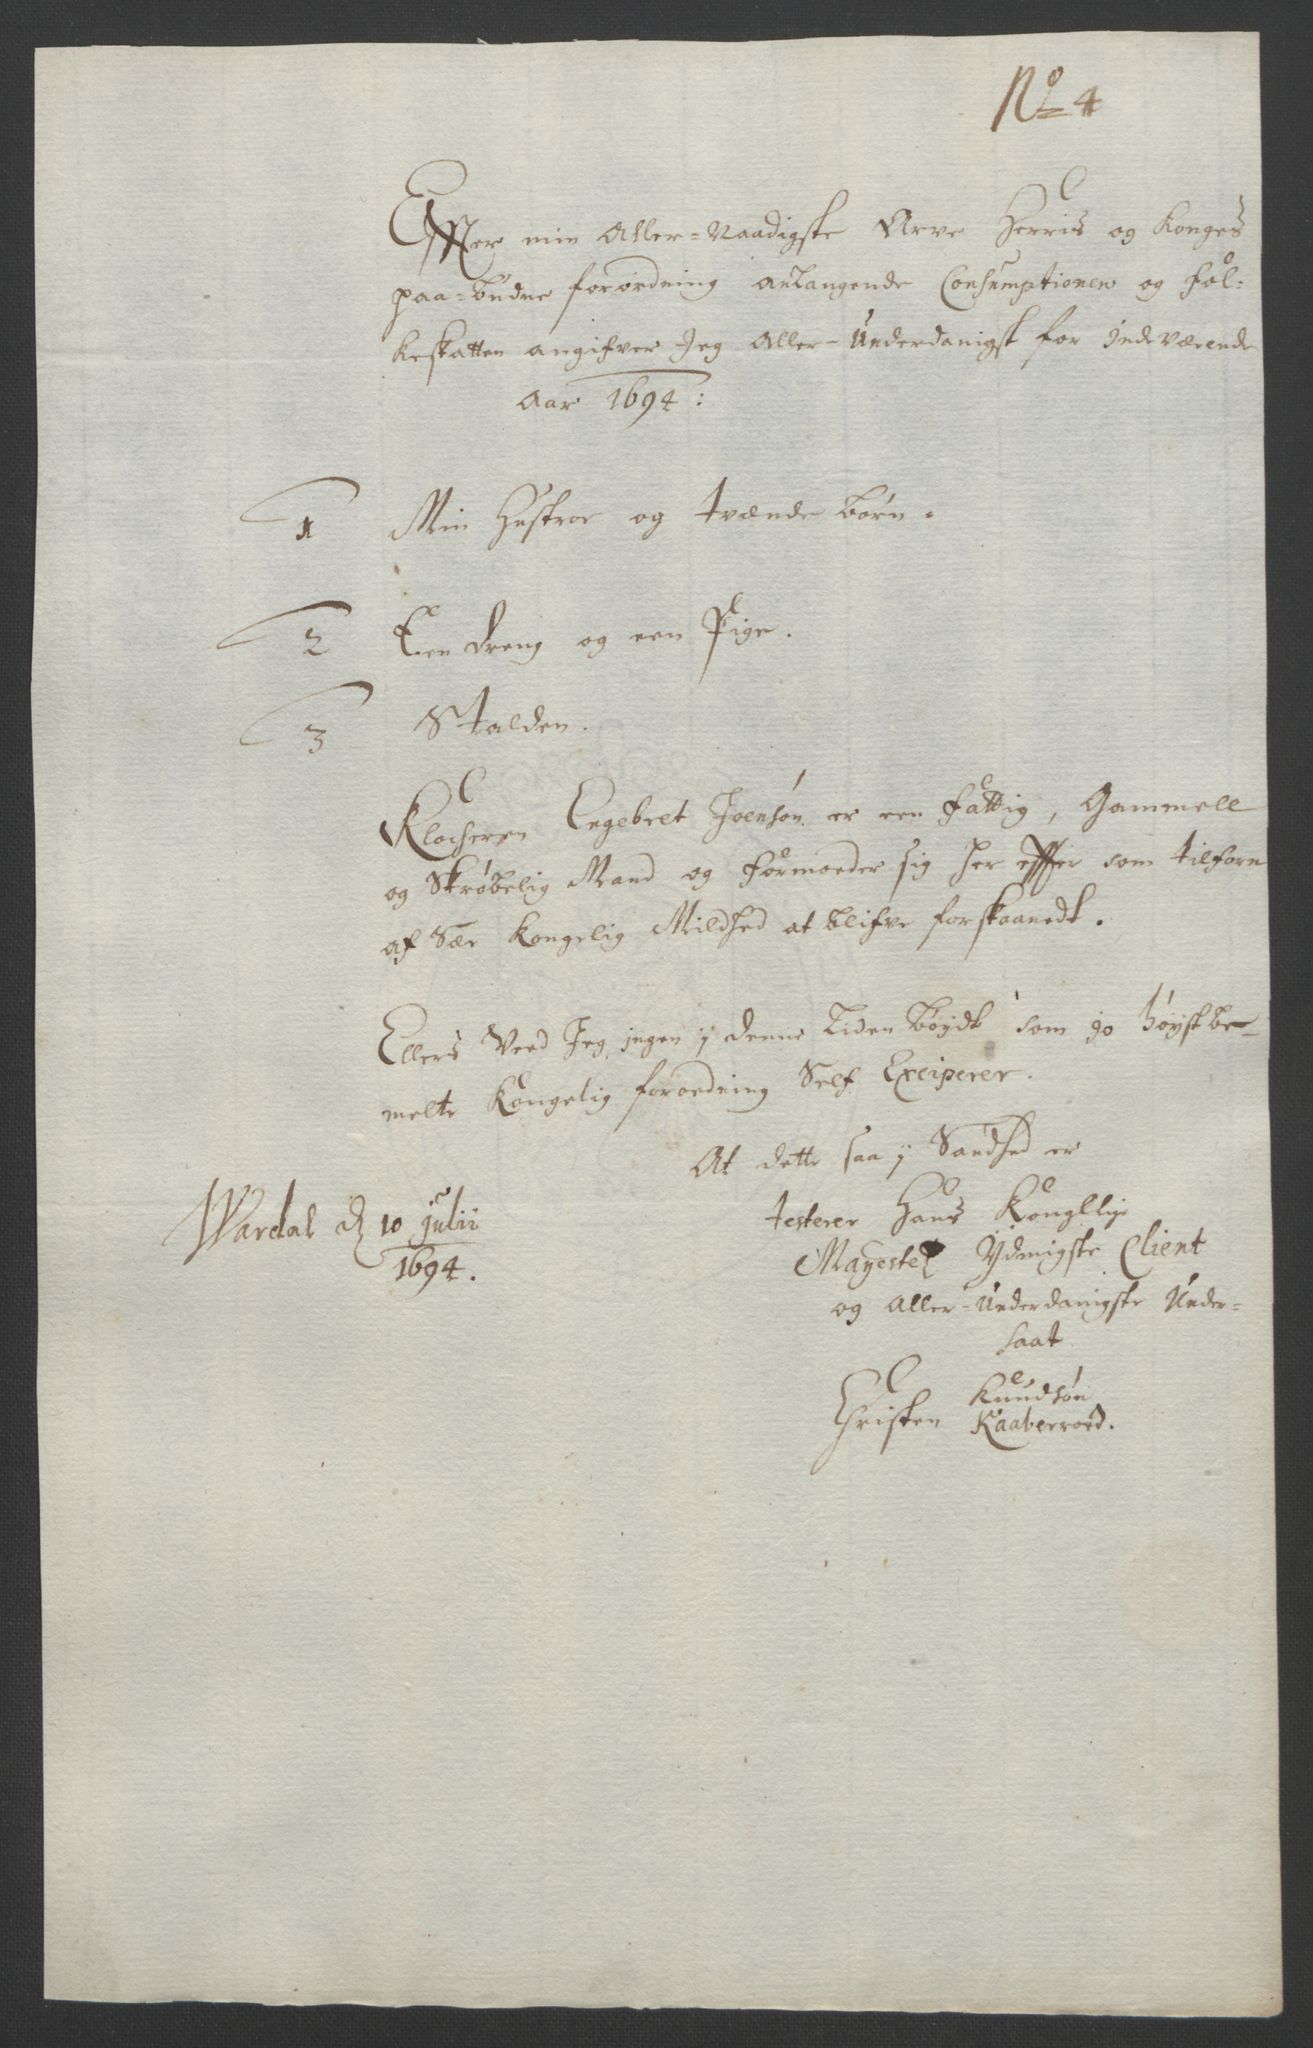 No 4
Effter min Aller-Naadigste Arve Herris og Konges
paa-budne forordning anlangende Consumptionen og fol-
keskatten angifver Jeg Aller-Underdanigst for Indeværende
Aar 1694:
1 Min Hustroe og tvænde børn.
2 Een dreng og een Pige.
3 Stalden.
Klocheren Engebret Joensøn er een fattig, Gammell
og Skrøbelig Mand og formoeder sig her effter som tilforn
af Sær Kongelig Mildhed at blifve forskaanedt.
Ellers Veed Jeg ingen j denne liden bøydt som jo høystbe-
melte Kongelig forordning Self Exciperer.
At dette saa j Sandhed er
testerer Hans Kongllige
Wardal d 10 Julii
1694.
Mayestetz Ydmigste Client
og Aller-Underdanigste Under-
saat
Christen Knudsøn
Kaaberroed.